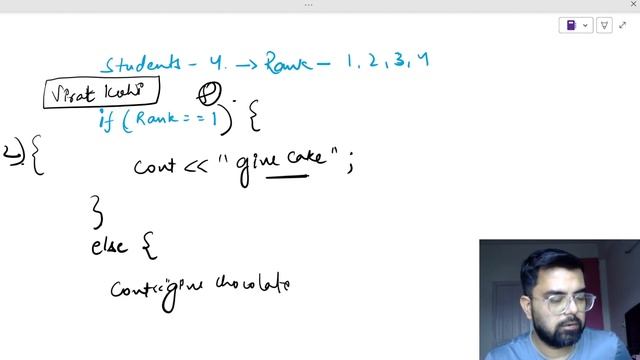 Students - 4. → Rank - 1, 2, 3, 4
Virat Kohli
if (Rank == 1) {
2) {
cout << "give cake" ;
}
else {
cout<<"give chocolate